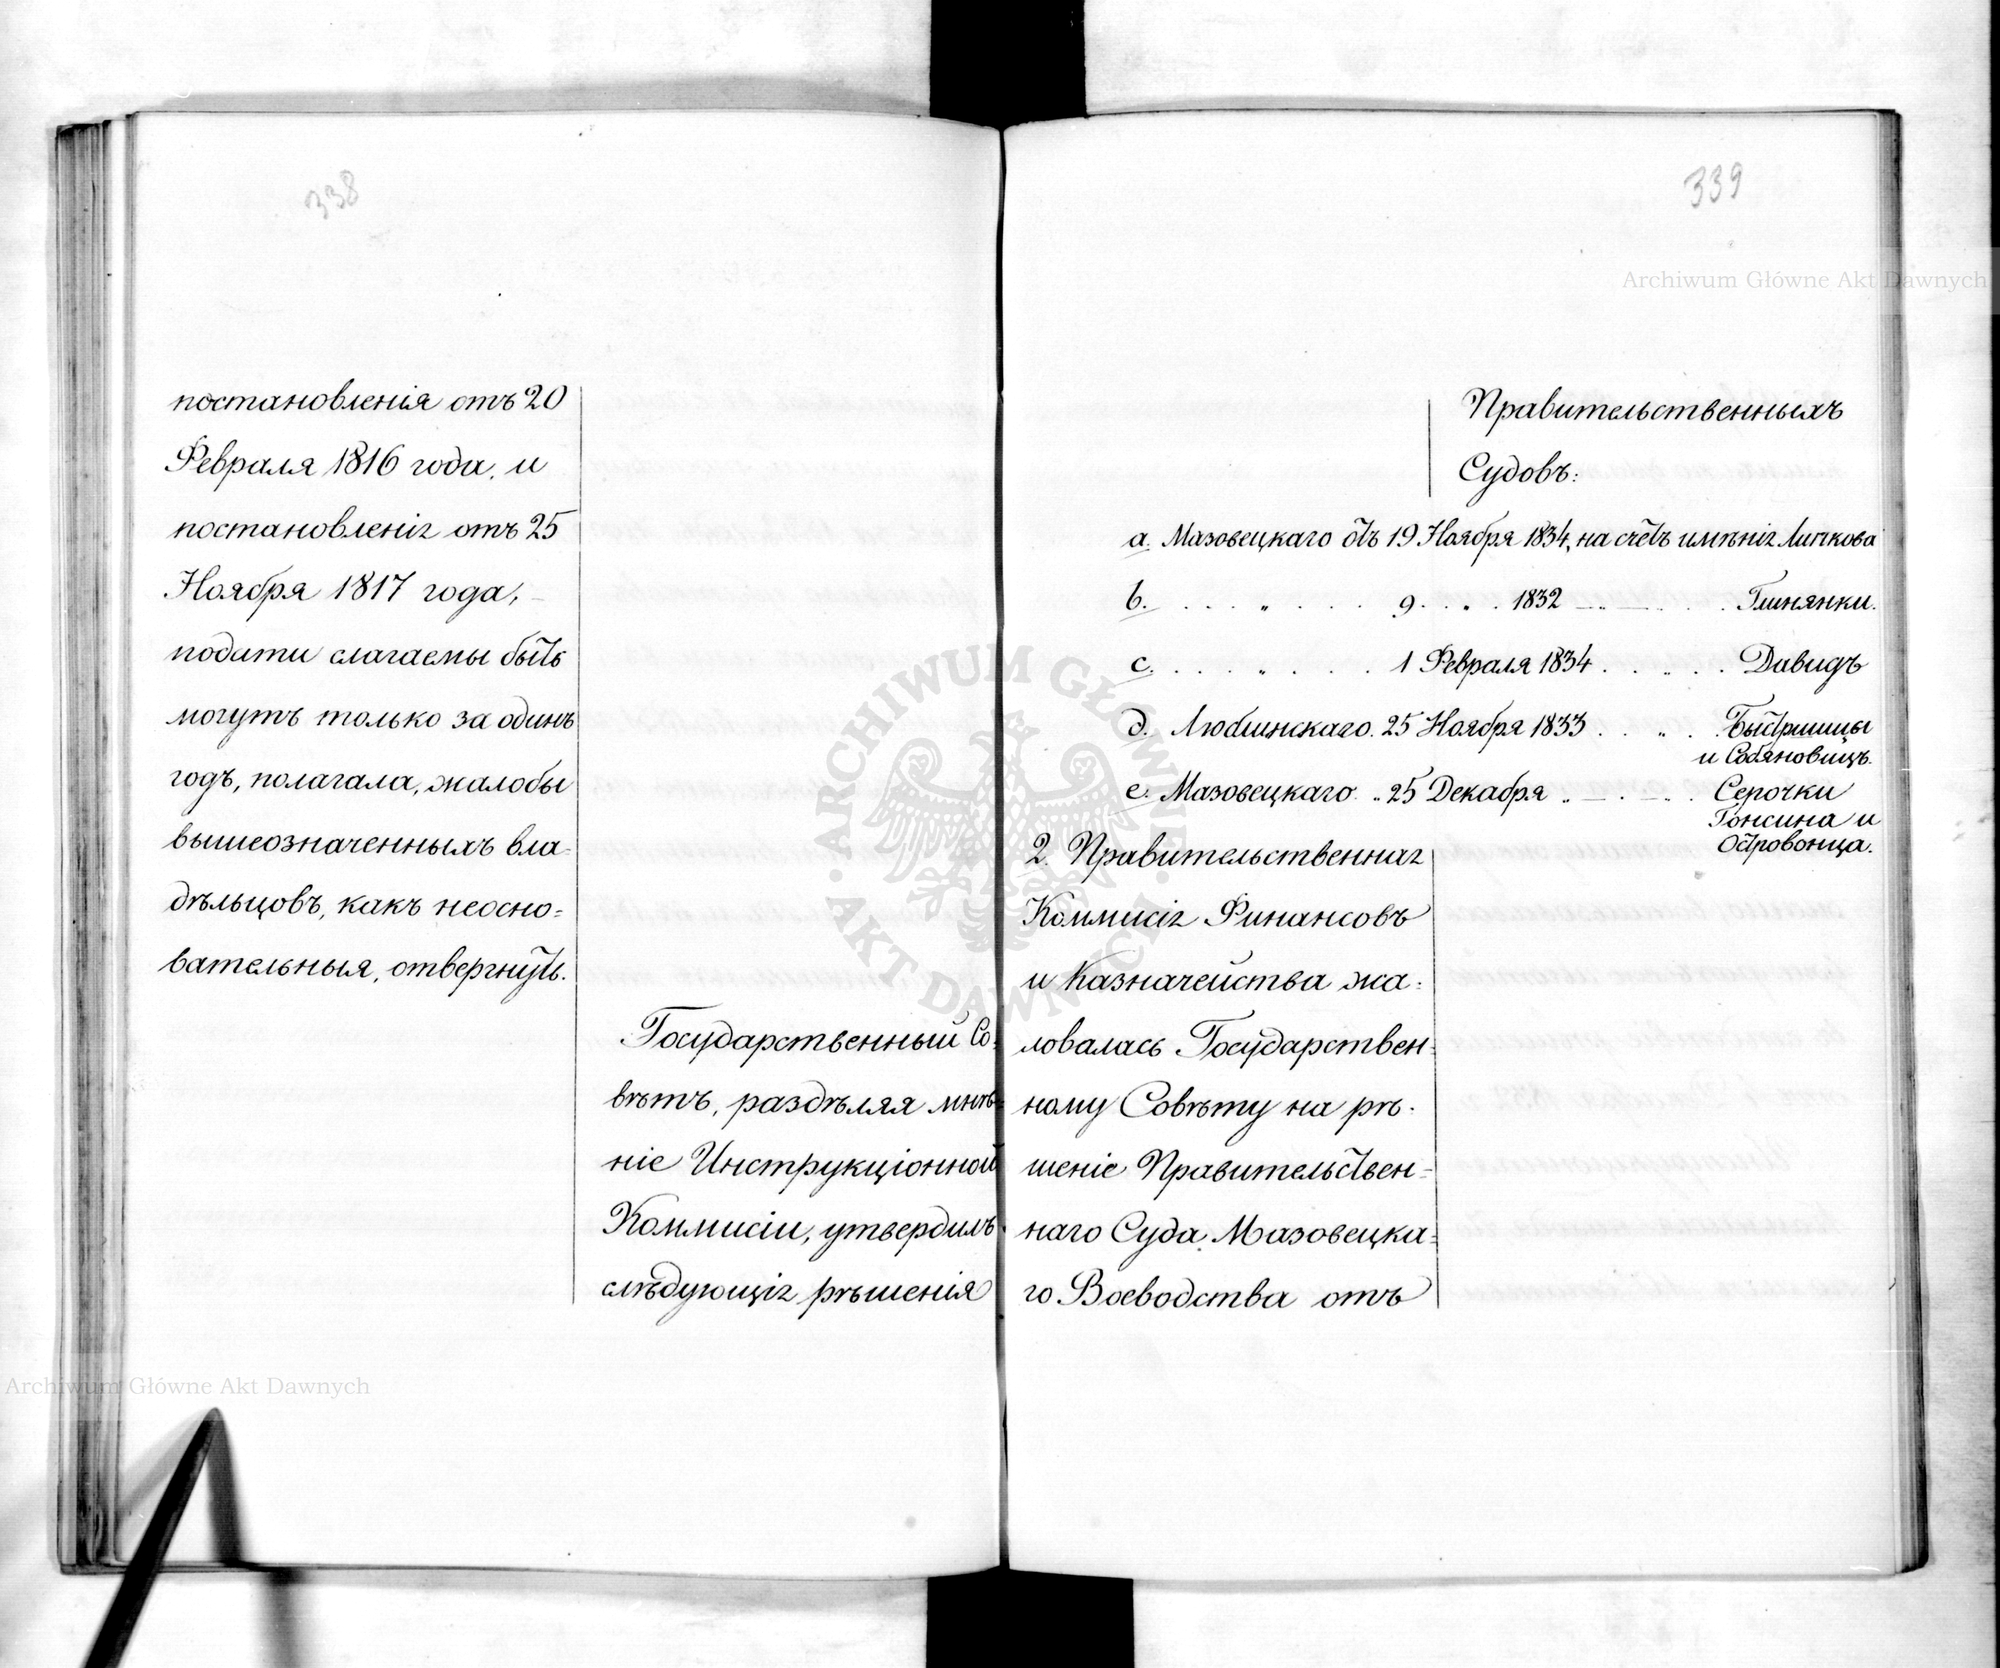 338
постановленія отъ 20
Февраля 1816 года, и
постановленія отъ 25
Ноября 1817 года,
подати слагаемы быть
могутъ только за одинъ
годъ, полагала, жалобы
вышеозначенныхъ вла-
дѣльцовъ, какъ неосно=
вательныя, отвергнуть.
Государственный Со=
вѣтъ, раздѣляя мнѣ=
ніе Инструкціонной
Коммисіи, утвердилъ
слѣдующія рѣшенія
339
Правительственныхъ
Судовъ:
a. Мазовецкаго отъ 19 Ноября 1834, на счетъ имѣнія Липкова
b. . . . „ . . . 9 . „ . 1832 — „ — . . Глинянки.
c. . . . „ . . . 1 Февраля 1834 . . „ . . Давидъ
d. Люблинскаго. 25 Ноября 1833 . . „ . . Быстршицы
и Собяновицъ.
e. Мазовецкаго. „ 25 Декабря „ — . — „ . Серочки
Гонсина и
Островонца.
2. Правительственная
Коммисія Финансовъ
и Казначейства жа=
ловалась Государствен=
ному Совѣту на рѣ-
шеніе Правительствен=
наго Суда Мазовецка=
го Воеводства отъ
Archiwum Główne Akt Dawnych
Archiwum Główne Akt Dawnych
ARCHIWUM GŁÓWNE AKT DAWNYCH